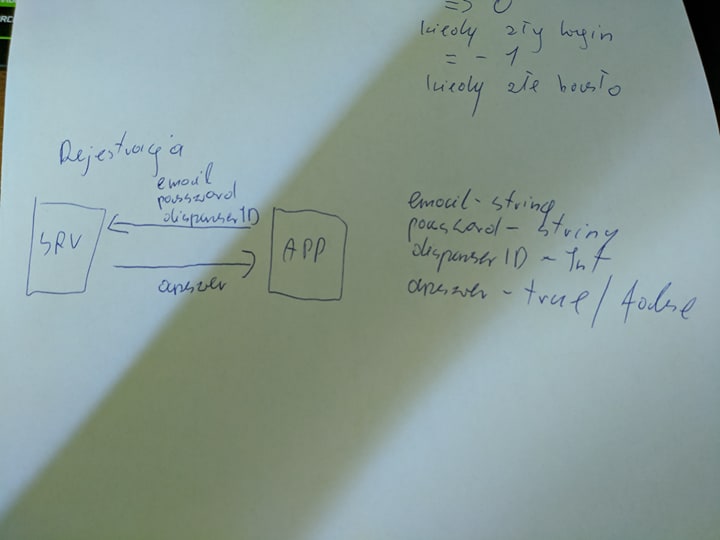 => 0
kiedy zły login
= - 1
kiedy złe hasło
Rejestracja
email
password
dispenserID
SRV
APP
answer
email - string
password - string
dispenserID - Int
answer - true / false